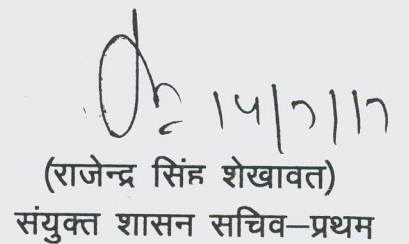 14/7/17
(राजेन्द्र सिंह शेखावत)
संयुक्त शासन सचिव–प्रथम